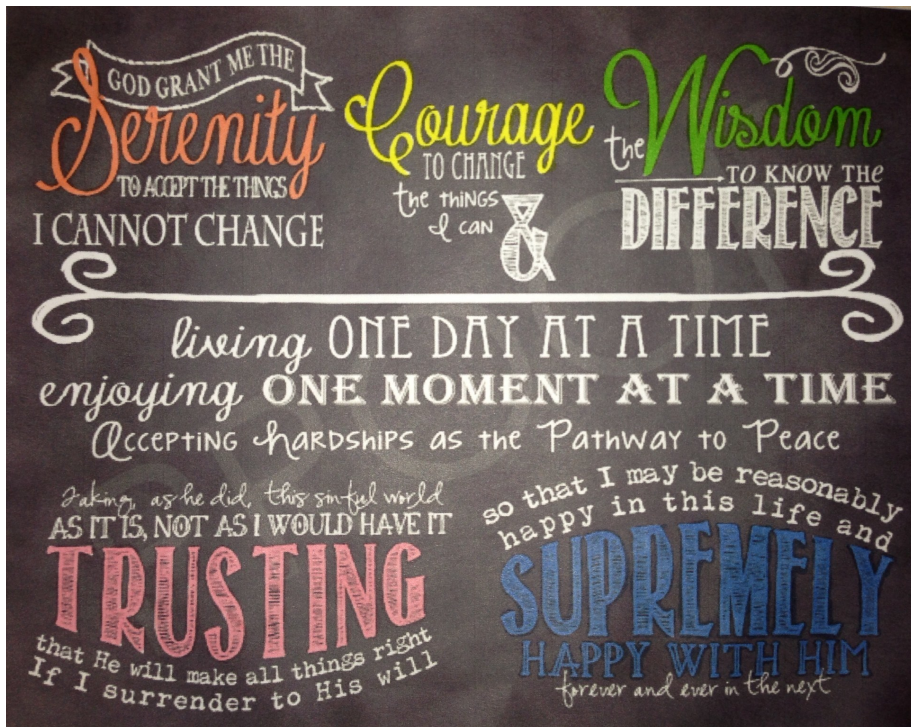 GOD GRANT ME THE
Serenity
TO ACCEPT THE THINGS
I CANNOT CHANGE
Courage
TO CHANGE
the THINGS
I CAN
&
the Wisdom
TO KNOW THE
DIFFERENCE
living ONE DAY AT A TIME
enjoying ONE MOMENT AT A TIME
Accepting hardships as the Pathway to Peace
Taking, as he did, this sinful world
AS IT IS, NOT AS I WOULD HAVE IT
TRUSTING
that He will make all things right
If I surrender to His will
so that I may be reasonably
happy in this life and
SUPREMELY
HAPPY WITH HIM
forever and ever in the next